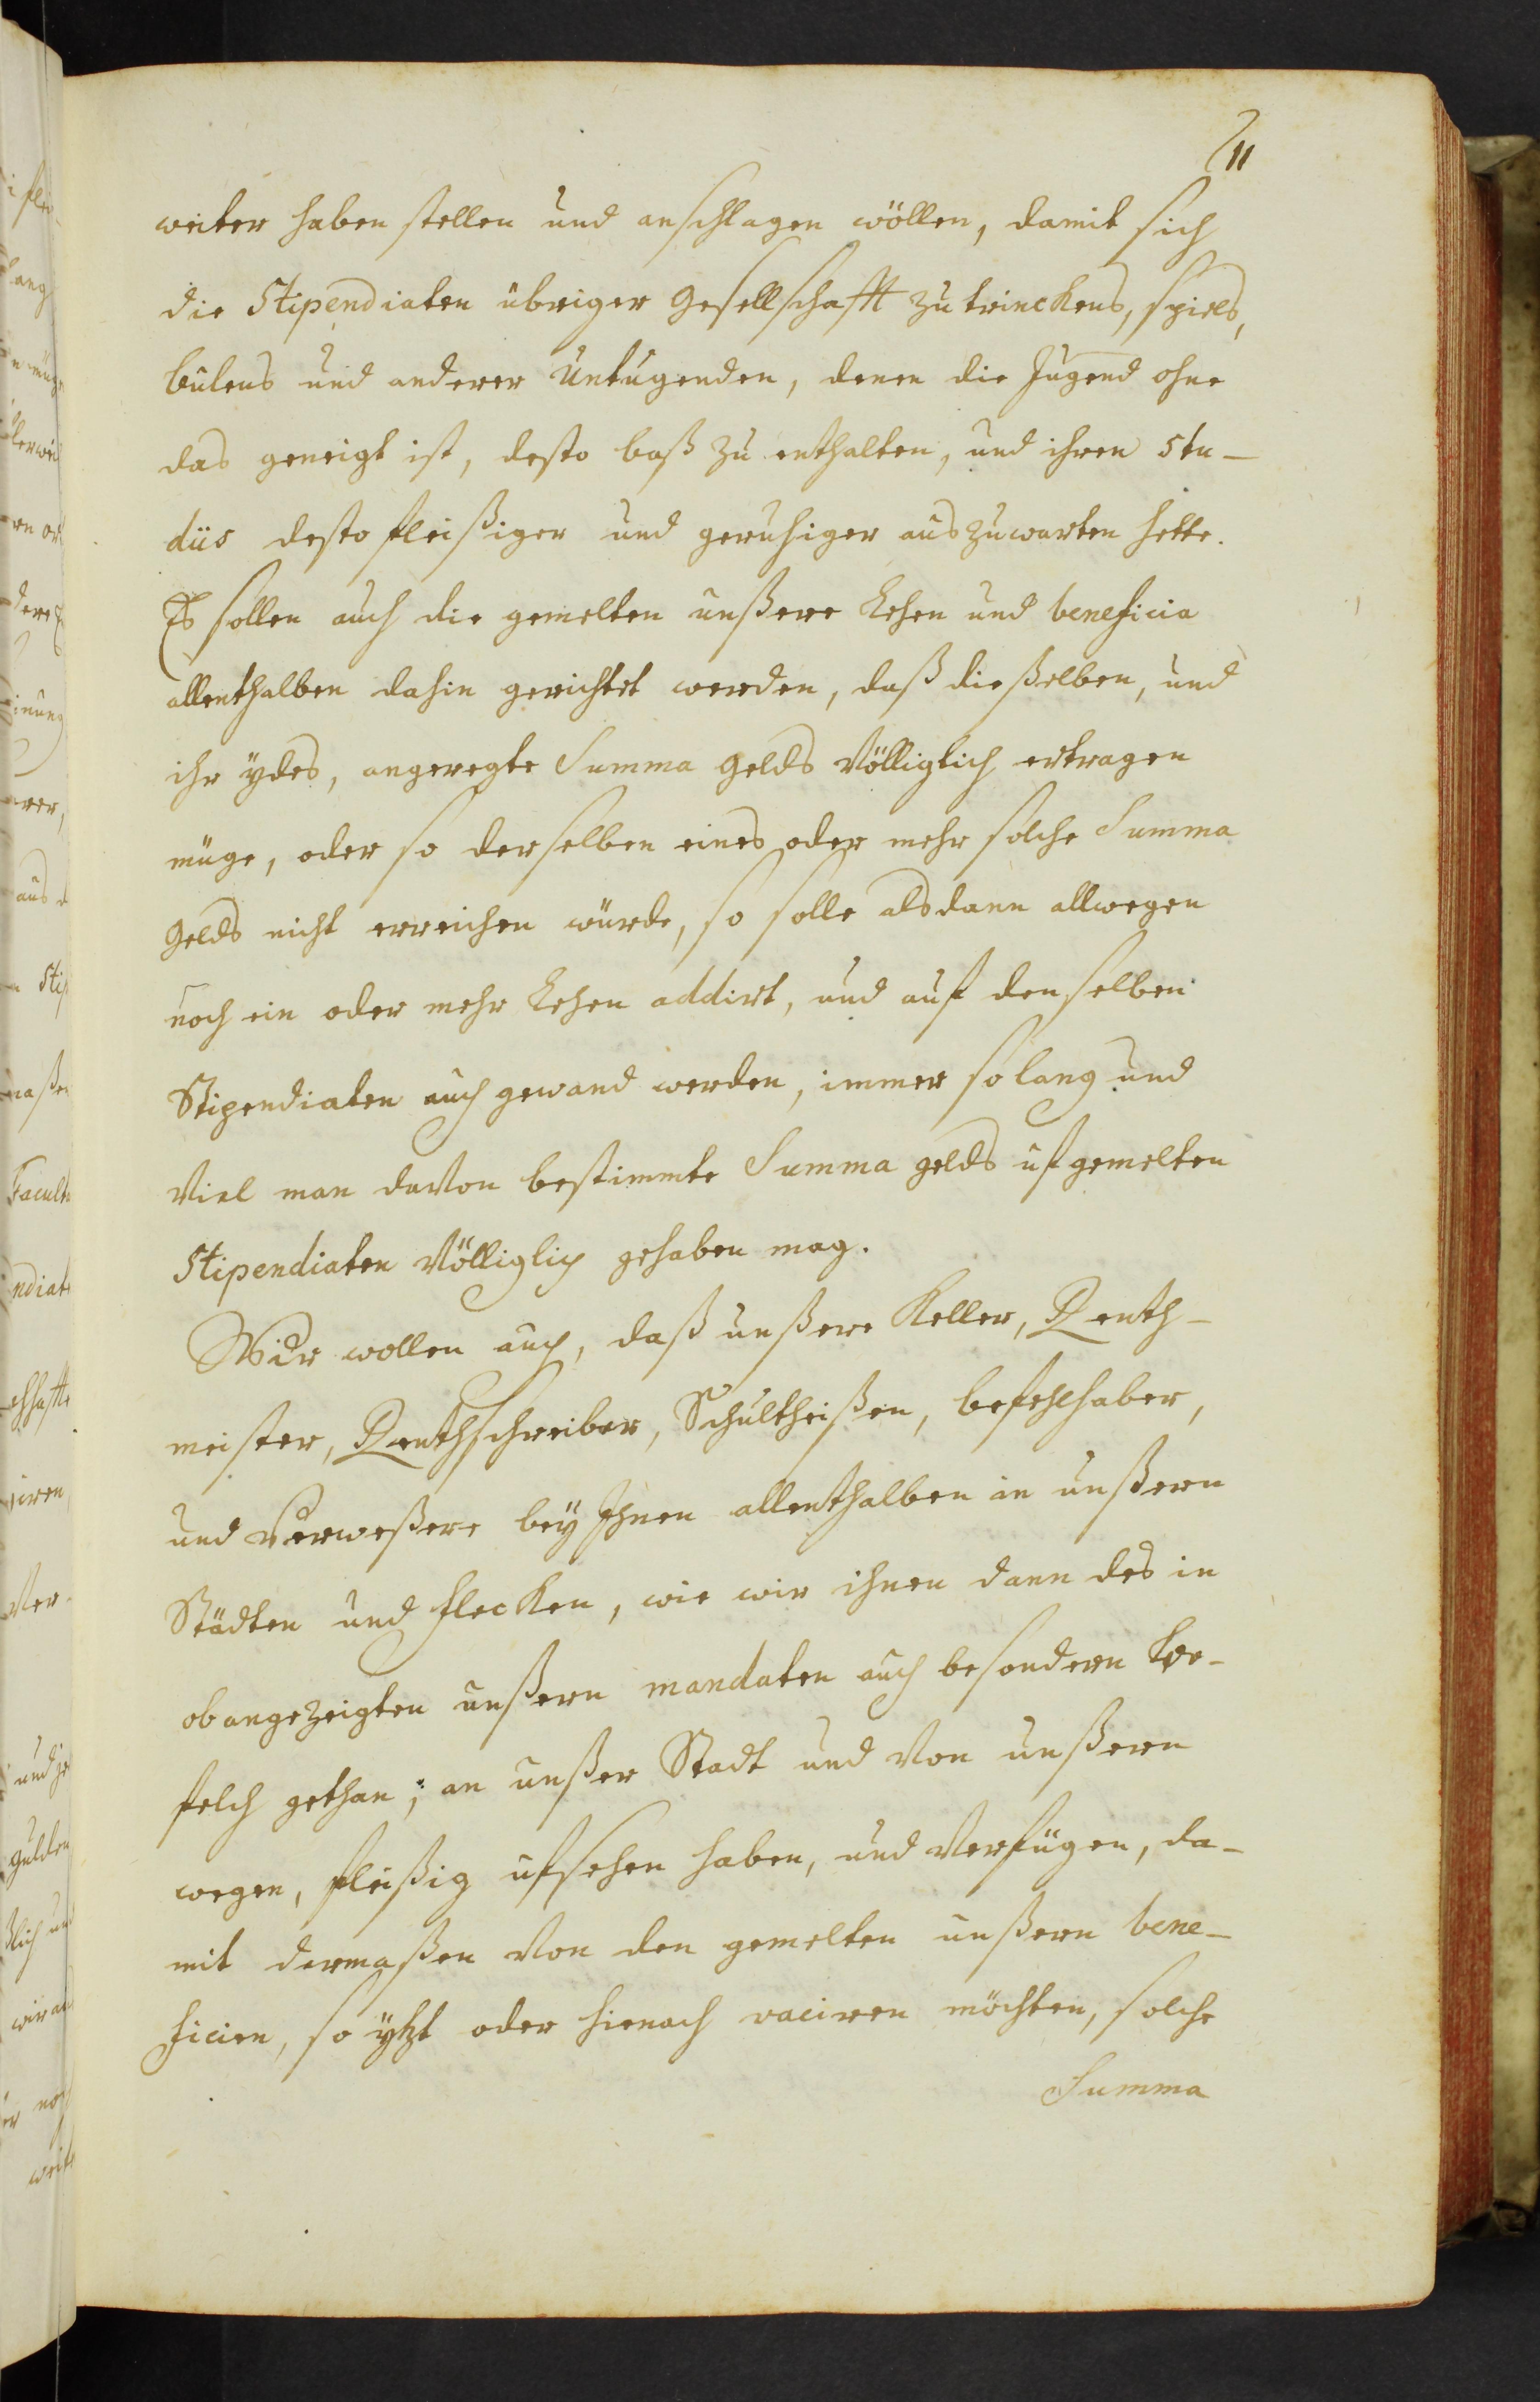 11
weiter haben stellen und anschlagen wöllen, damit sich
die Stipendiaten übriger Gesellschafft zutrinckens, spiels,
bulens und anderer Untugenden, denen die Jugend ohne
das geneigt ist, desto baß zu enthalten, und ihren Stu-
diis desto fleißiger und geruhiger auszuwarten hette.
Es sollen auch die gemelten unßere Lehen und beneficia
allenthalben dahin gerichtet werden, daß dießelben, und
ihr ÿdes, angeregte Summa gelds völliglich ertragen
müge, oder so derselben eines oder mehr solche Summa
gelds nicht erreichen würde, so solle alsdann allwegen
noch ein oder mehr Lehen addirt, und auf denselben
Stipendiaten auch gewand werden, immer so lang und
viel man davon bestimmte Summa gelds uf gemelten
Stipendiaten völliglich gehaben mag.
Wir wollen auch, daß unßere Keller, Renth-
meister, Renthschreiber, Schultheißen, befehlhaber,
und Verweßere beÿ Ihnen allenthalben in unßern
Städten und flecken, wie wir ihnen dann des in
obangezeigten unßern mandaten auch besondern be-
felch gethan; an unßer Stadt und von unßern
wegen, fleißig ufsehen haben, und verfügen, da-
mit dermaßen von den gemelten unßern bene-
ficien, so ÿtzt oder hienach vaciren möchten, solche
Summa